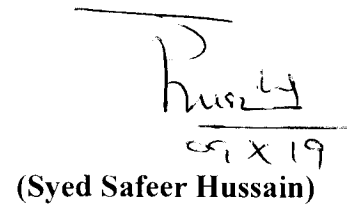 09 X 19
(Syed Safeer Hussain)